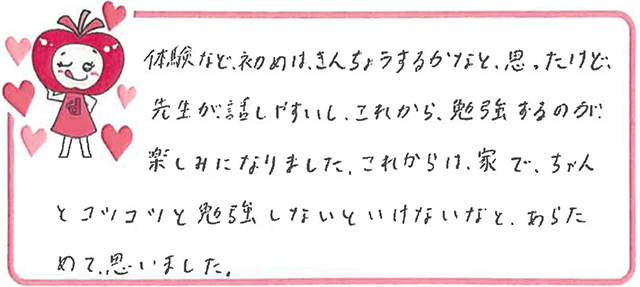 体験など、初めは、きんちょうするかなと、思ったけど、
先生が話しやすいし、これから、勉強するのが
楽しみになりました。これからは、家で、ちゃん
とコツコツと勉強しないといけないなと、あらた
めて、思いました。